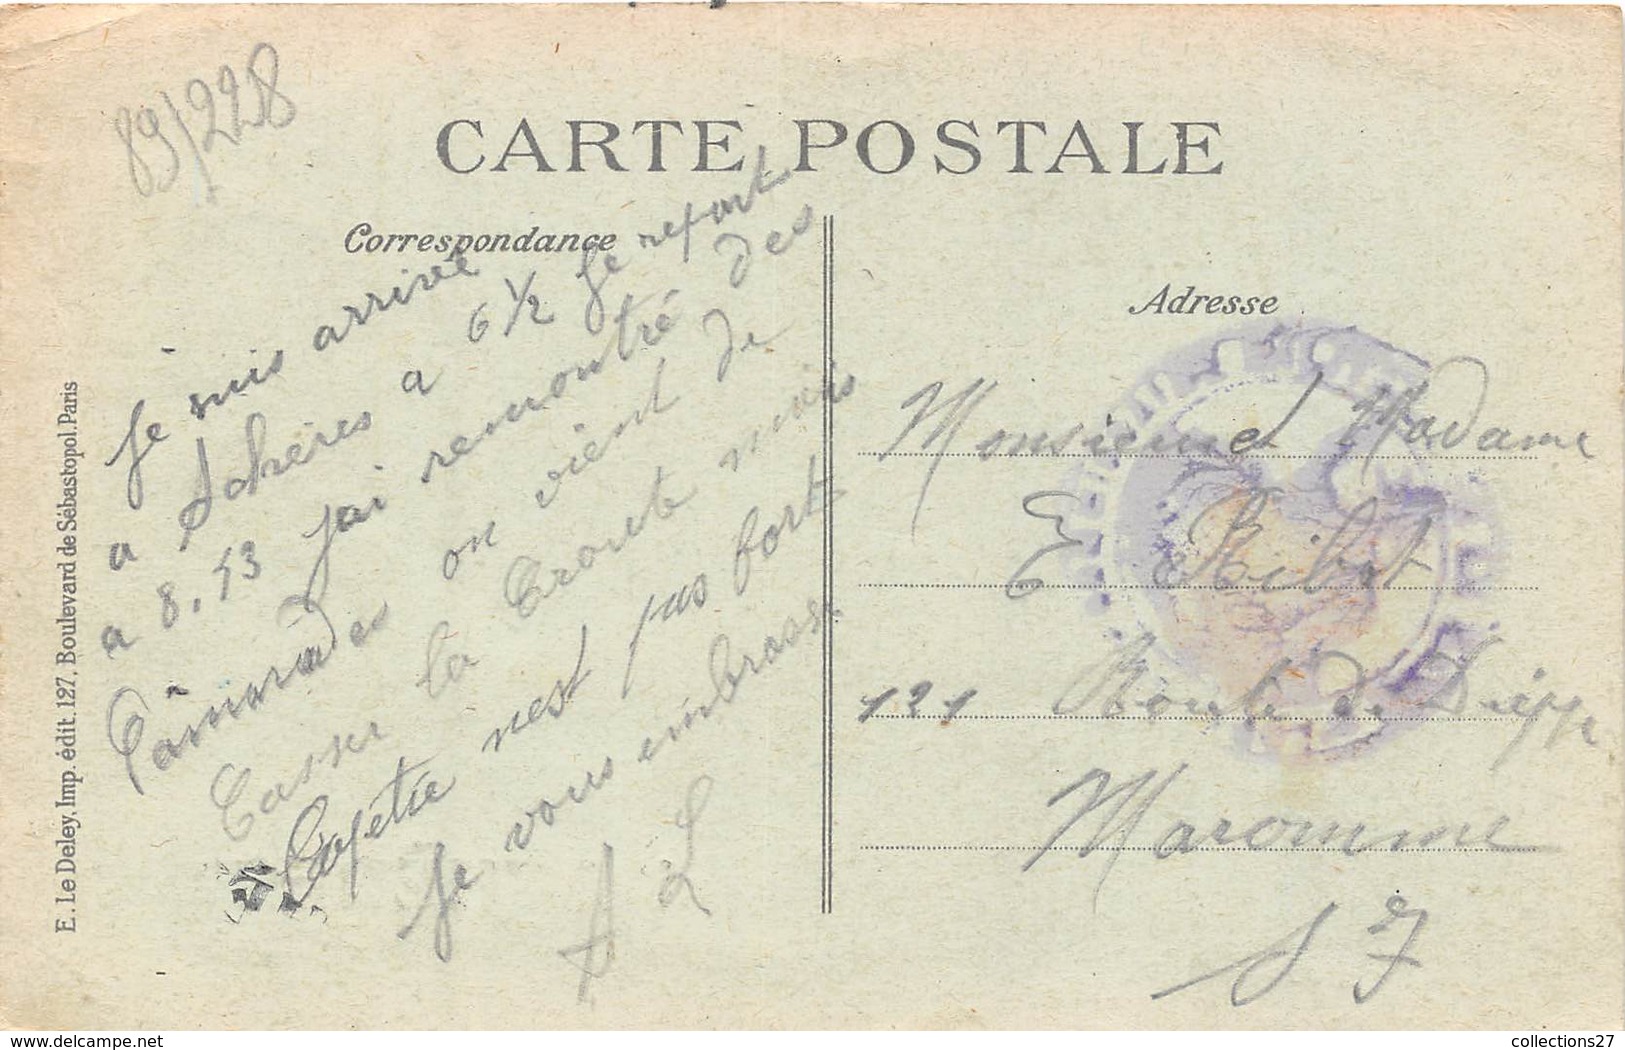 89/228
CARTE POSTALE
Correspondance
Je suis arrivé
a Achères a 6 1/2 Je repart
a 8.13 j'ai remontré des
Camarades on vient de
Casser la Croute mais
l'apétie n'est pas fort
Je vous embrasse
A L
Adresse
Monsieur et Madame
E Ribot
121 Route de Dieppe
Maromme
S I
E. Le Deley, Imp. édit. 127, Boulevard de Sébastopol. Paris
collections27